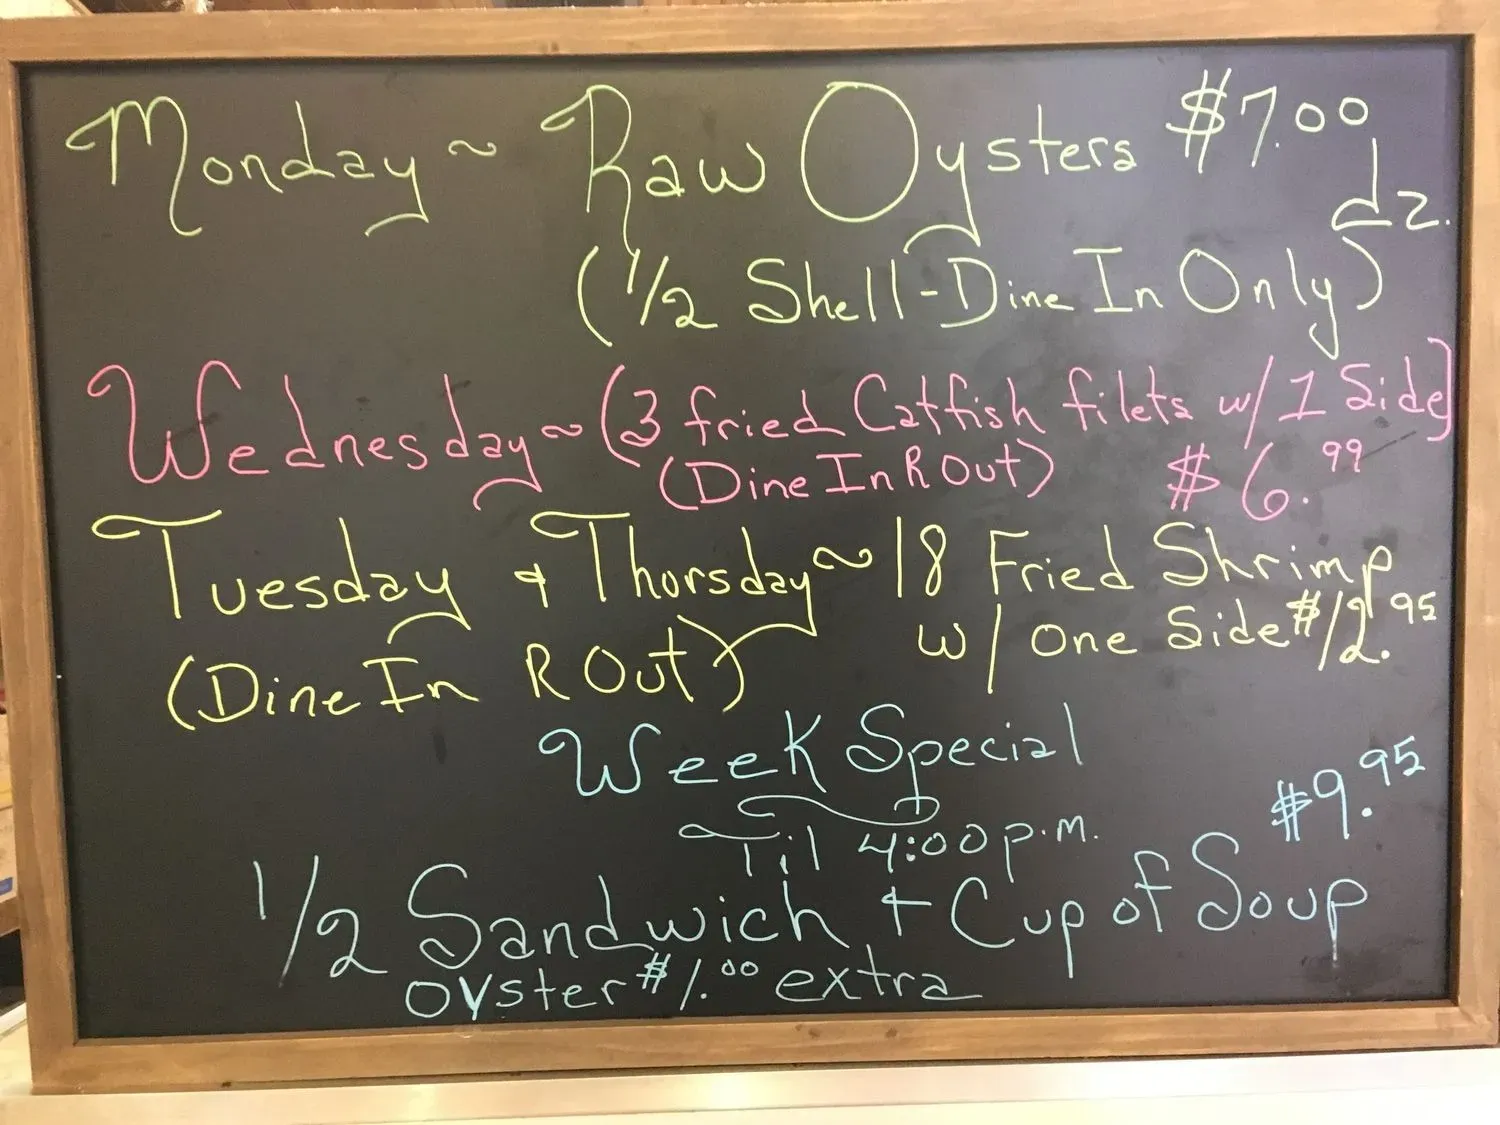 Monday ~ Raw Oysters $7.00 dz.
(1/2 Shell-Dine In Only)
Wednesday ~ (3 fried Catfish filets w/ 1 Side)
(Dine In R Out) $6.99
Tuesday + Thorsday ~ 18 Fried Shrimp
(Dine In R Out) w/ one Side $12.95
Week Special
Til 4:00 p.m. $9.95
1/2 Sandwich + Cup of Soup
oyster $1.00 extra